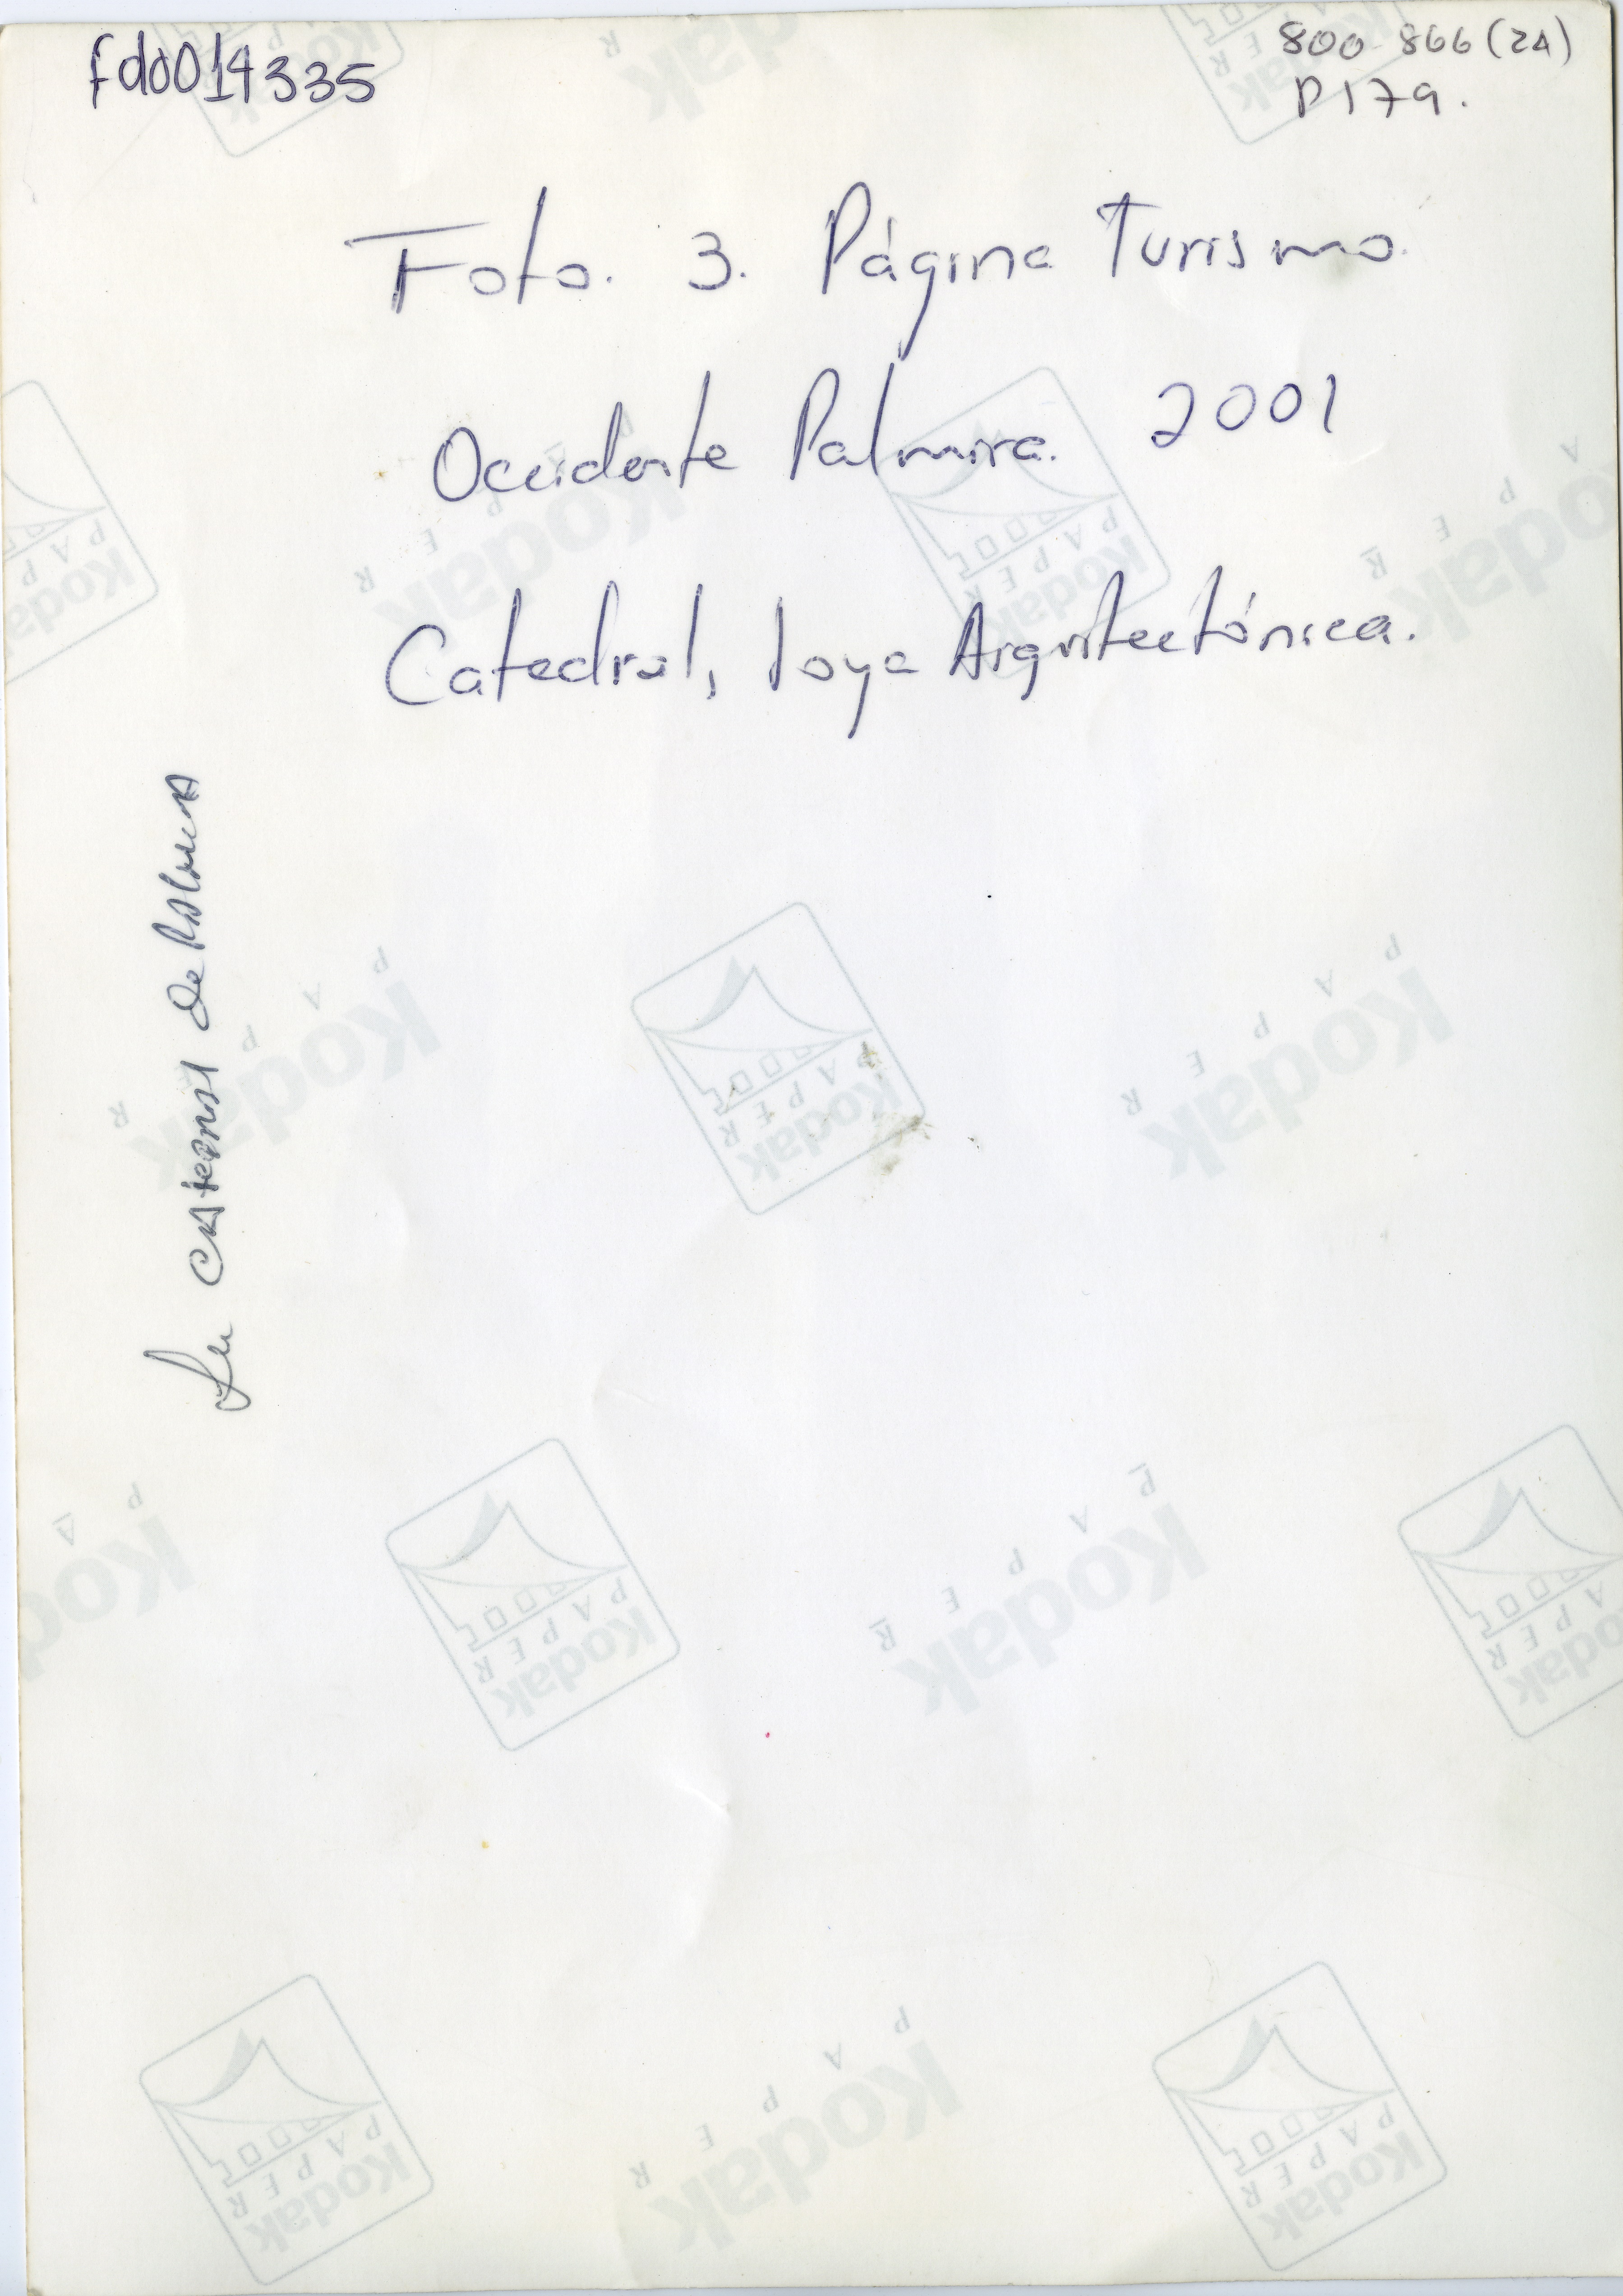 fdo014335
800-866(2A)
P179.
Foto. 3. Página Turismo.
Occidente Palmira. 2001
Catedral, Joya Arquitectónica.
La Catedral De Palmira
Kodak
PAPER